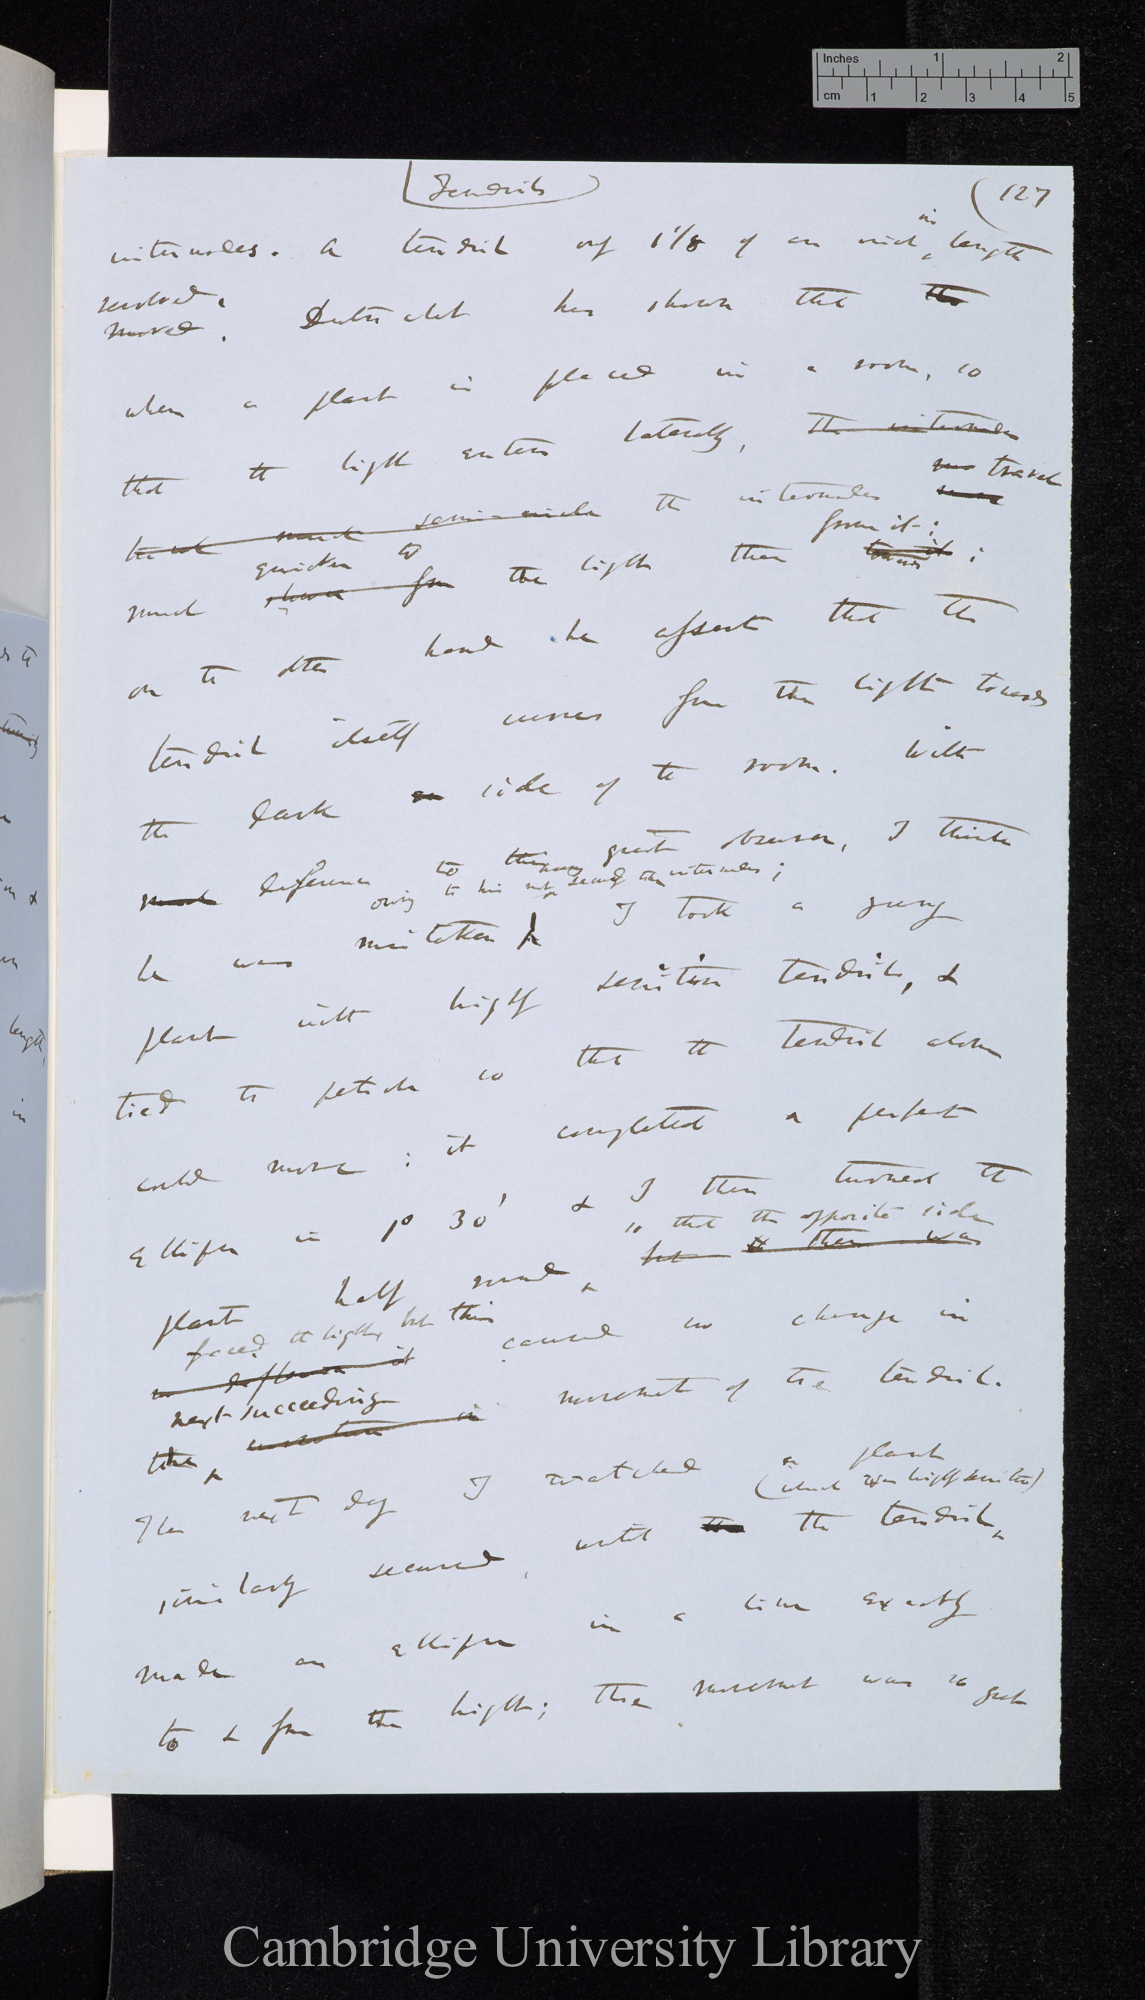 Inches 1 2
cm 1 2 3 4 5
Tendrils (127
internodes. A tendril only 1 1/8 of an inch in length
revolved.
moved. Dutrochet has shown that the
when a plant is placed in a room, so
that the light enters laterally, the internodes
travel
semi-circle the internodes
quicker to from it;
much the light than towards it;
on the other hand he assert that the
tendril itself moves from the light towards
the dark side of the room. With
much deference to this great observer, I think
owing to his not having secured the internodes;
he was mistaken I took a young
plant with highly sensitive tendrils, &
tied the petiole so that the tendril alone
could move; it completed a perfect
ellipse in 1° 30' & I then turned the
so that the opposite side
plant half round, but there was
faced the light, but this caused no change in
no difference it
next succeeding
the movement of the tendril.
The next day I watched a plant
(which was highly sensitive)
similarly secured, until the tendril,
made an ellipse in a line exactly
to & from the light; the movement was so great
length,
in
Cambridge University Library